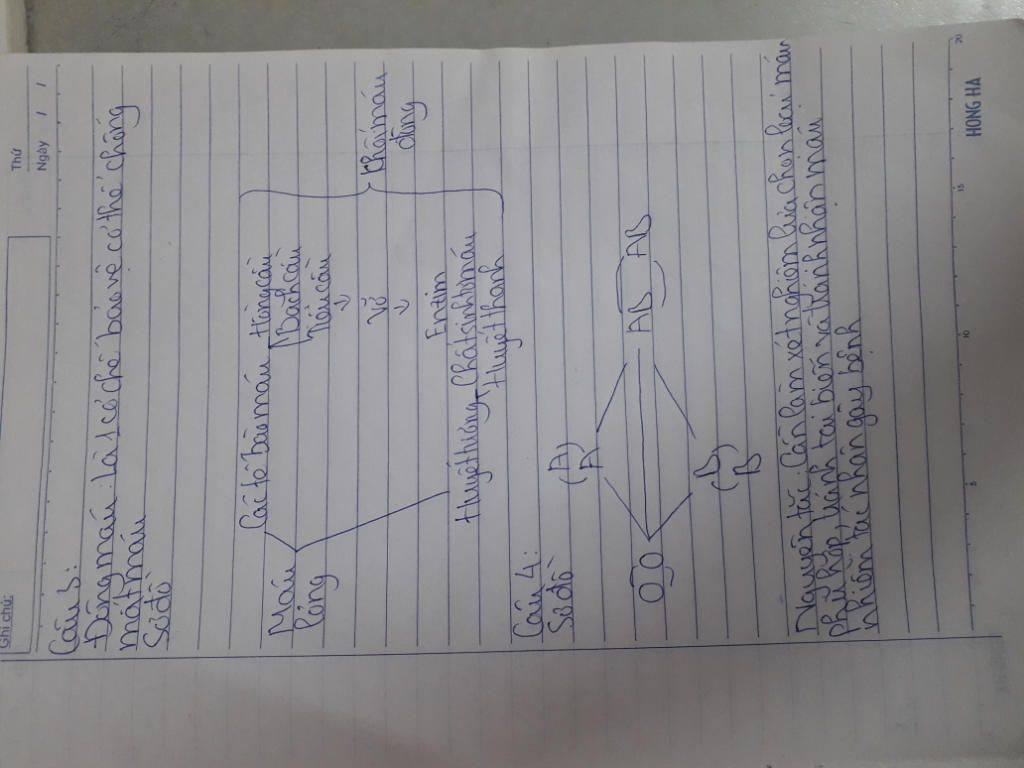 Ghi chú:
Thứ
Ngày / /
Câu 3:
Đông máu: Là 1 cơ chế bảo vệ cơ thể chống
mất máu
Sơ đồ
Máu lỏng
Các tế bào máu
Hồng cầu
Bạch cầu
Tiểu cầu
Vỡ
Enzim
Huyết tương
Chất sinh tơ máu
Huyết thanh
Khối máu
đông
Câu 4:
Sơ đồ
(A)
A
O O
AB AB
(B)
B
Nguyên tắc: Cần làm xét nghiệm lựa chọn loại máu
phù hợp, tránh tai biến và tránh nhận máu
nhiễm tác nhân gây bệnh
5 10 15 20
HONG HA